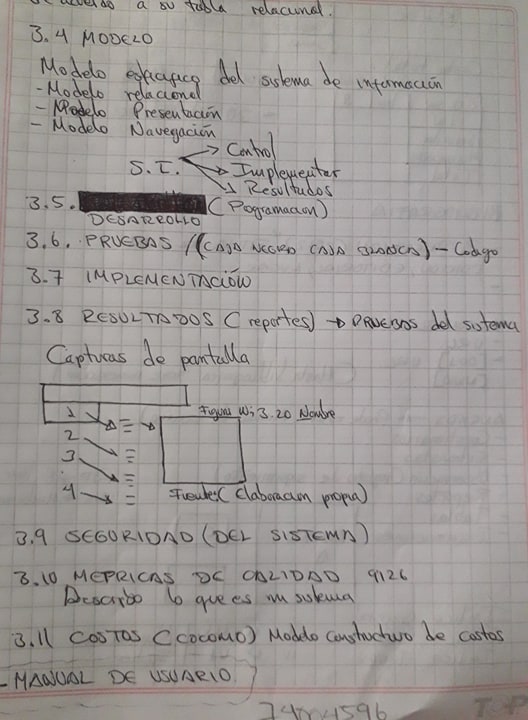 de acuerdo a su tabla relacional.
3.4 MODELO
Modelo especifico del sistema de información
- Modelo relacional
- Modelo Presentación
- Modelo Navegación
S.I. → Control
→ Implementar
→ Resultados
3.5. (Programacion)
DESARROLLO
3.6. PRUEBAS ((CAJA NEGRO CAJA BLANCA) - Codigo
3.7 IMPLEMENTACIÓN
3.8 RESULTADOS (reportes) → PRUEBAS del sistema
Capturas de pantalla
1
2
3
4
Figura 3.20 Nombre
Fuente: (Elaboracion propia)
3.9 SEGURIDAD (DEL SISTEMA)
3.10 METRICAS DE CALIDAD 9126
Describo lo que es mi sistema
3.11 COSTOS (COCOMO) Modelo constructivo de costos
- MANUAL DE USUARIO